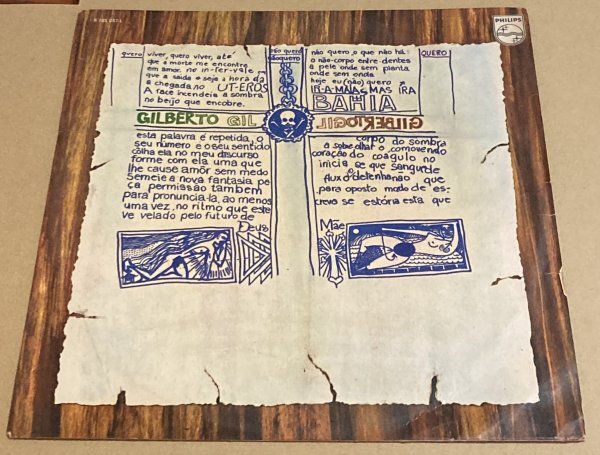 PHILIPS
quero viver, quero viver, até
que a morte me encontre
em amor, no in-fer-vale
que a sada e seja a hora da
a chegada no UT-EROS
A face incendeia a sombra
no beijo que encobre.
não quero
nãoquero
não quero o que não há:
o não-corpo entre dentes
a pele onde sem planta
onde sem onda
hoje eu (não) quero
IR-A-MAIA, MAS IRA
BAHIA
QUERO
GILBERTO GIL
GILBERTO GIL
esta palavra é repetida, o
seu número e o seu sentido
colha ela no meu discurso
forme com ela uma que
lhe cause amôr sem medo
Semeie a nova fantasia pe
ça permissão tambem
para pronunciá-la, ao menos
uma vez, no ritmo que este
ve velado pelo futuro de
Deus
corpo da sombra
a sobre olhar o comovendo
coração do coagulo no
inicia se que sangue de
fluxo detenhanão que
para oposto modo de es-
crevo se estória esta que
Mãe